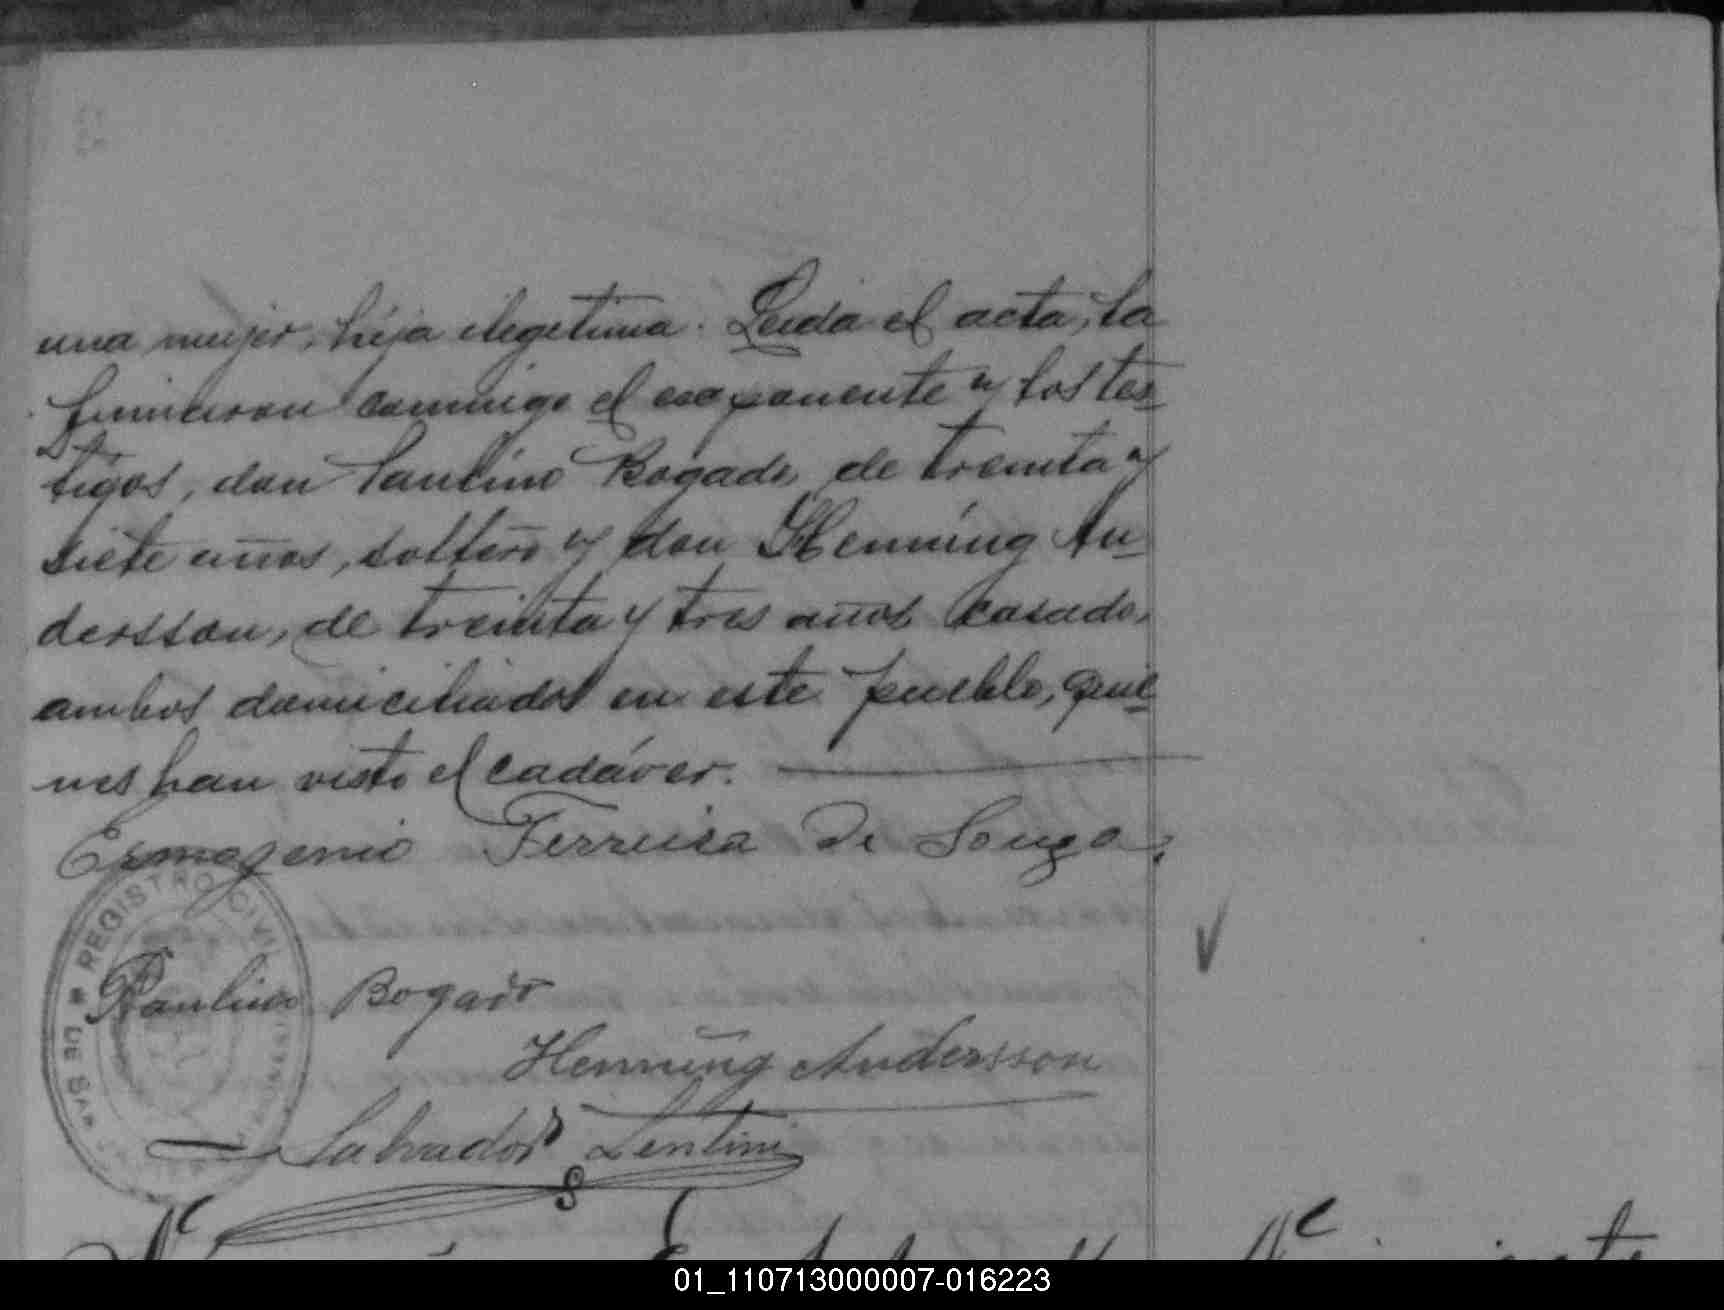 una mujer, hija ilegetima. Leida el acta, la
firmaron conmigo el exponente y los tes-
tigos, don Paulino Bogado, de treinta y
siete años, soltero y don Henning An-
dersson, de treinta y tres años casado,
ambos domiciliados en este pueblo, quie-
nes han visto el cadáver.
Ermogenio Ferreira De Souza
REGISTRO CIVIL
DE SAN
Paulino Bogado
Henning Andersson
Salvador Lentini
01_110713000007-016223